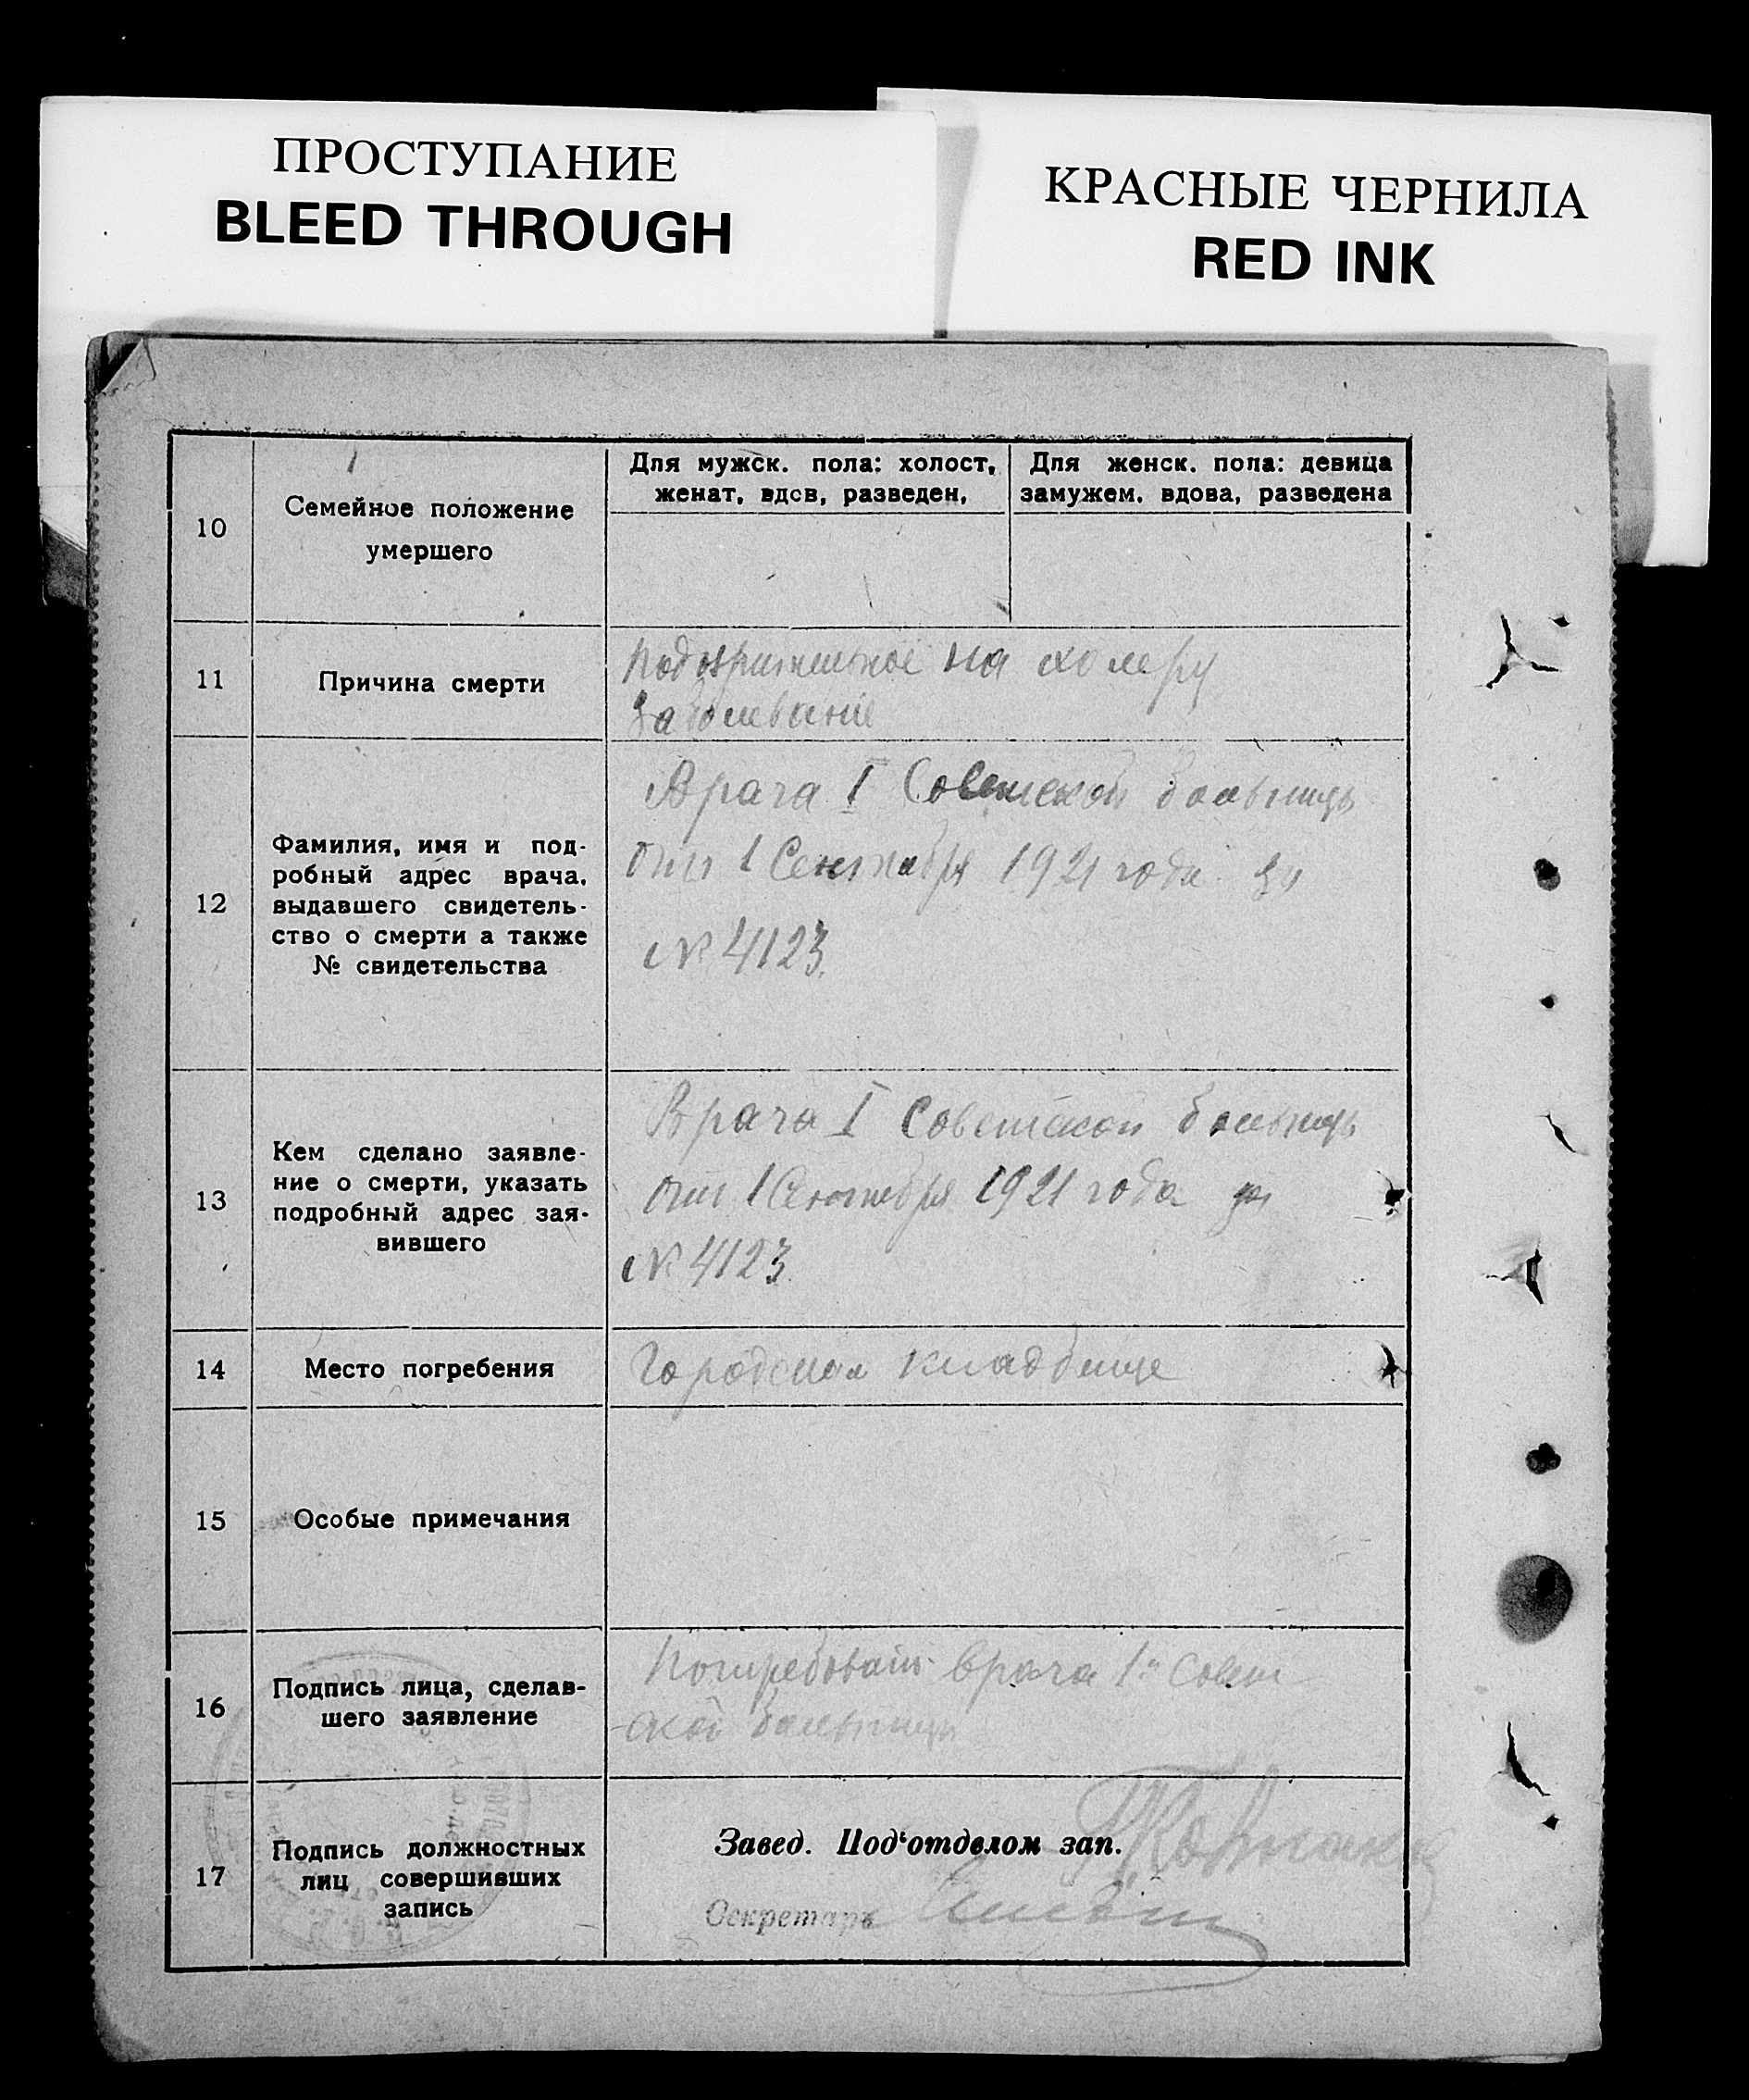 ПРОСТУПАНИЕ
BLEED THROUGH
КРАСНЫЕ ЧЕРНИЛА
RED INK
10
Семейное положение
умершего
Для мужск. пола: холост,
женат, вдов, разведен,
Для женск. пола: девица
замужем, вдова, разведена
11
Причина смерти
подозрительное на холеру
заболеваніе
12
Фамилия, имя и под-
робный адрес врача,
выдавшего свидетель-
ство о смерти а также
№ свидетельства
Врача I Советской больницы
от 1 Сентября 1921 года за
№ 4123.
13
Кем сделано заявле-
ние о смерти, указать
подробный адрес зая-
вившего
Врача I Советской больницы
от 1 Сентября 1921 года за
№ 4123.
14
Место погребения
Городское кладбище
15
Особые примечания
16
Подпись лица, сделав-
шего заявление
врача 1й Совет
-ской больницы
17
Подпись должностных
лиц совершивших
запись
Завед. Под'отделом зап.
Секретарь